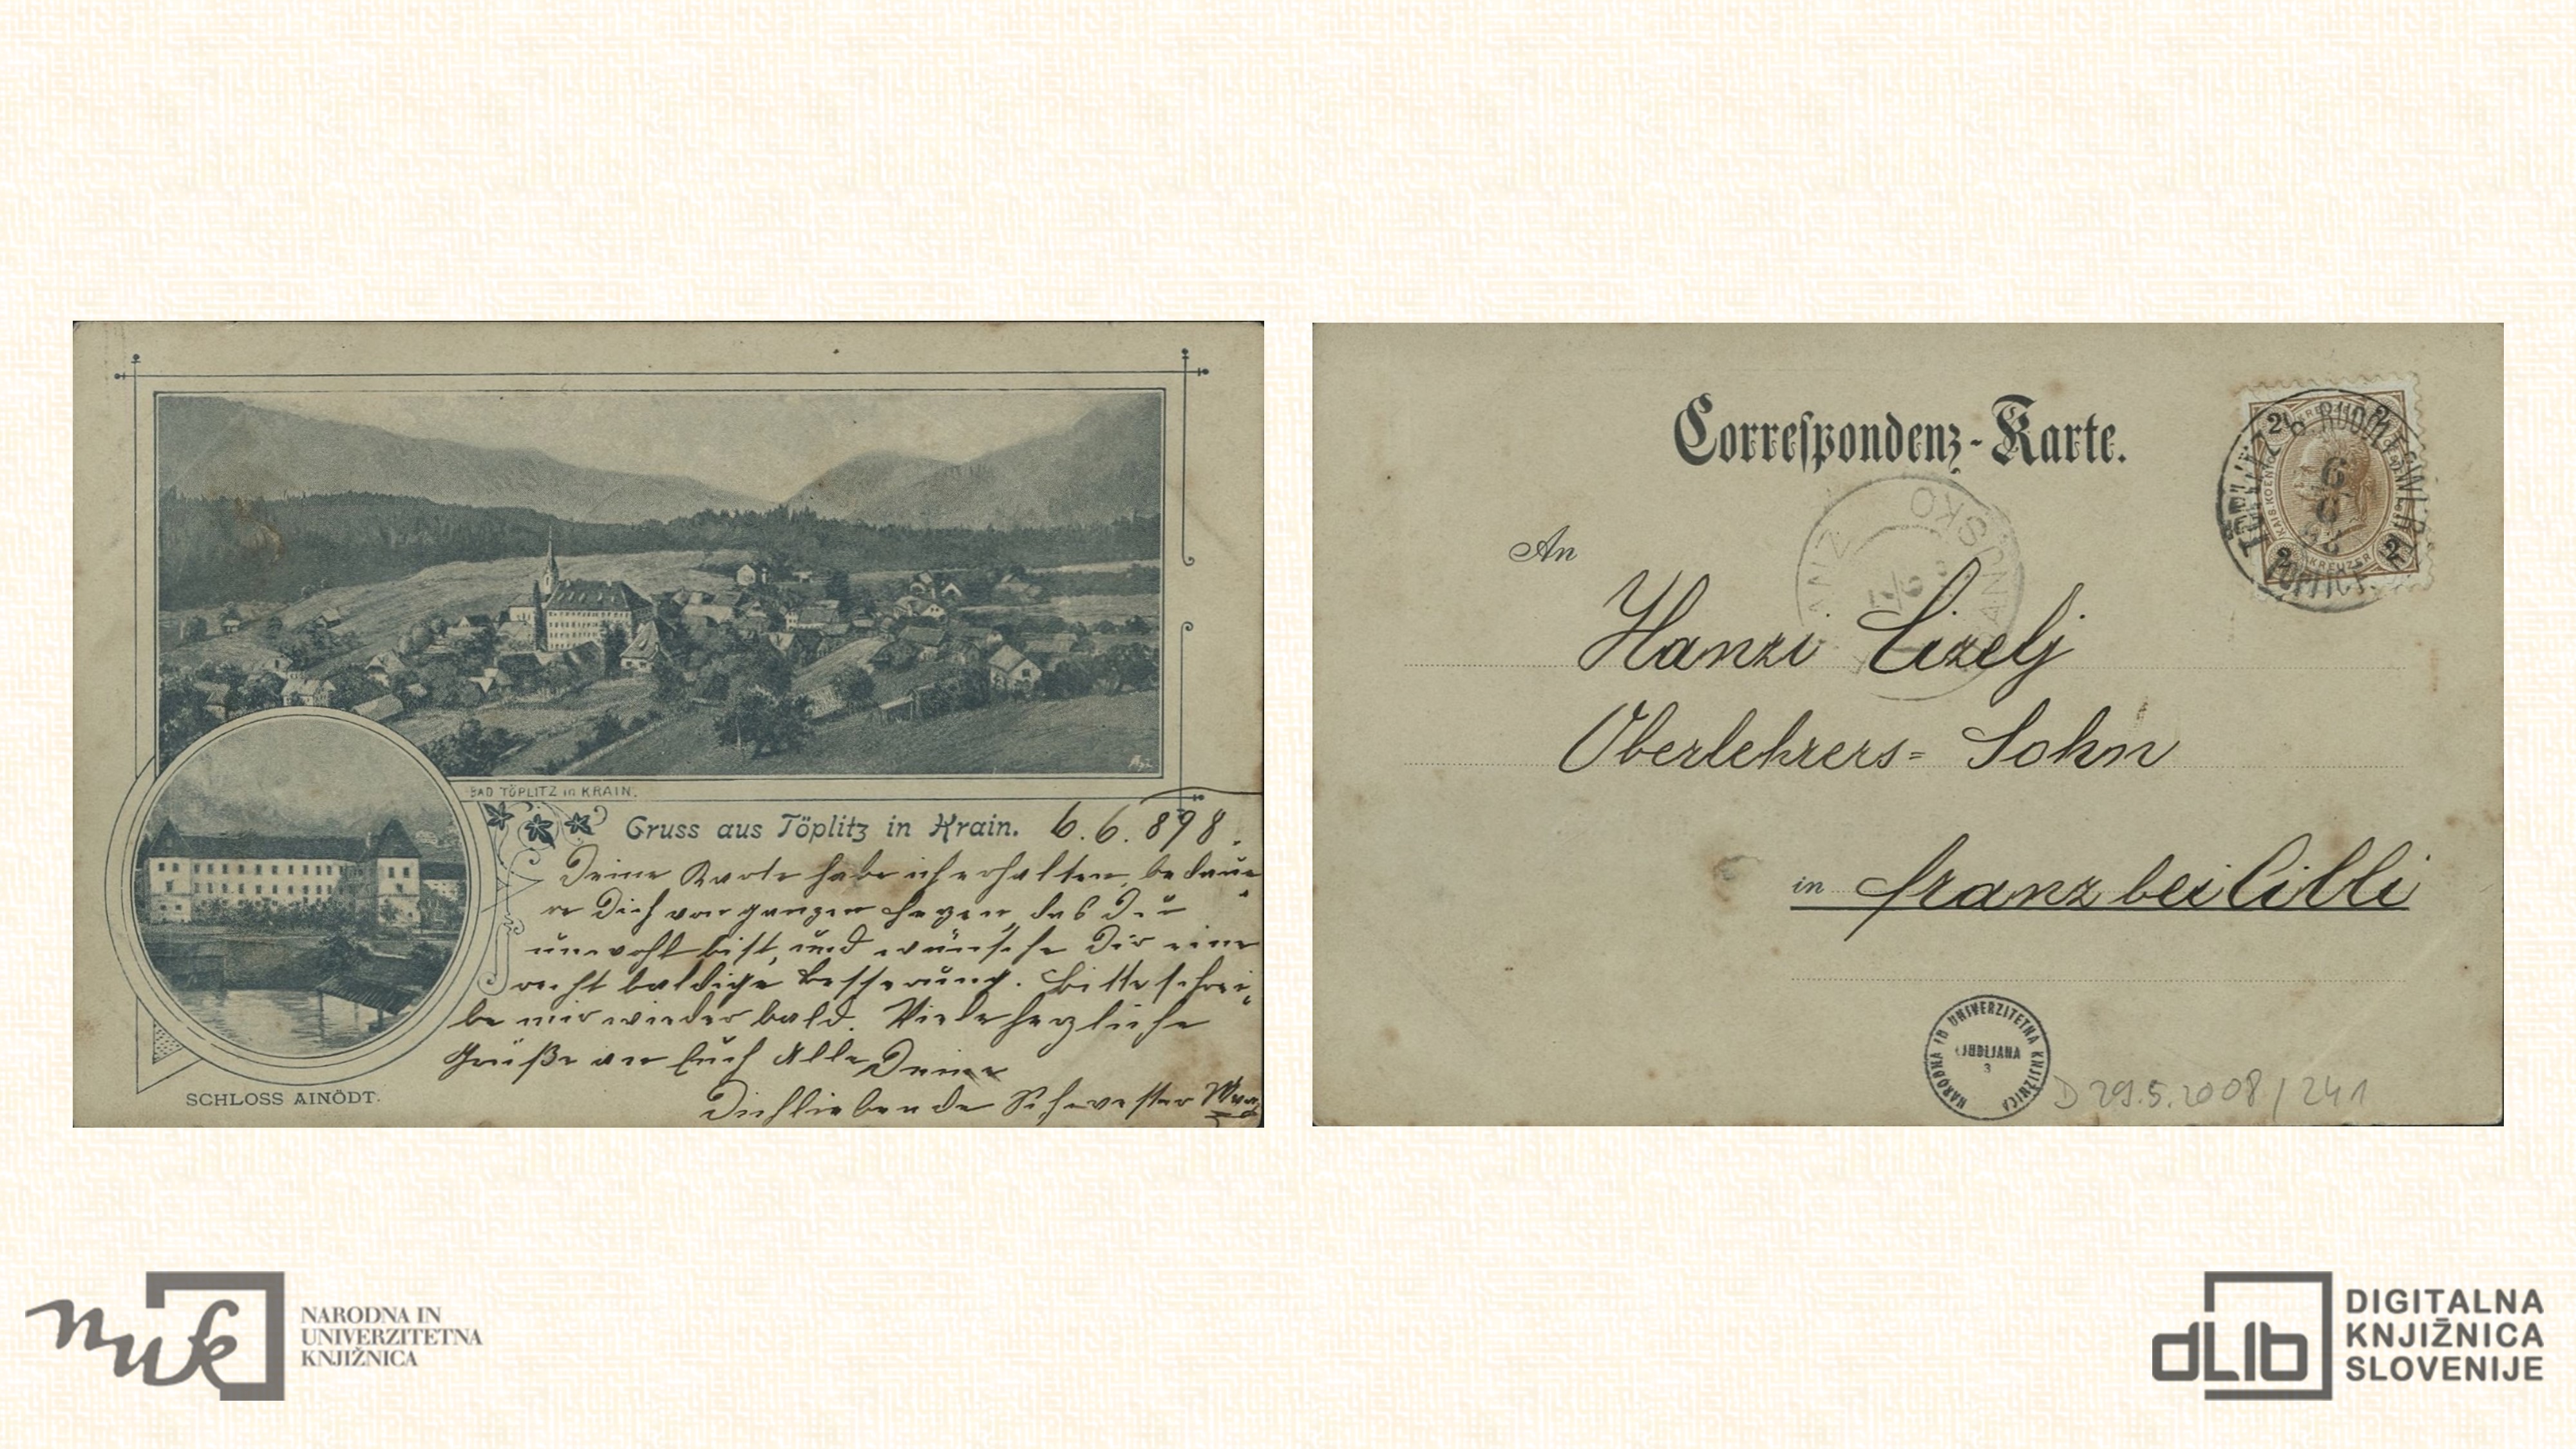 BAD TÖPLITZ in KRAIN.
Gruss aus Töplitz in Krain. 6. 6. 898.
Deine Karte habe ich erhalten, bedaue-
re Dich von ganzen Herzen, das Du
unwohl bist, und wünsche Dir eine
recht baldige Besserung. Bitte schrei-
be mir wieder bald. Viele herzliche
Grüße an Euch Alle Deine
Dich liebende Schwester
SCHLOSS AINÖDT.
Correspondenz-Karte.
An
Hanzi Lizelj
Oberlehrers= Sohn
in Franz bei Cilli
TÖPLITZ b. RUDOLFSWERT
6
6
98
TÖPLICE
2 2
2 KREUZER 2
FRANZ
VRANSKO
NARODNA IN UNIVERZITETNA KNJIŽNICA
LJUBLJANA
3
D 29.5.2008 / 241
nuk
NARODNA IN
UNIVERZITETNA
KNJIŽNICA
dLib
DIGITALNA
KNJIŽNICA
SLOVENIJE